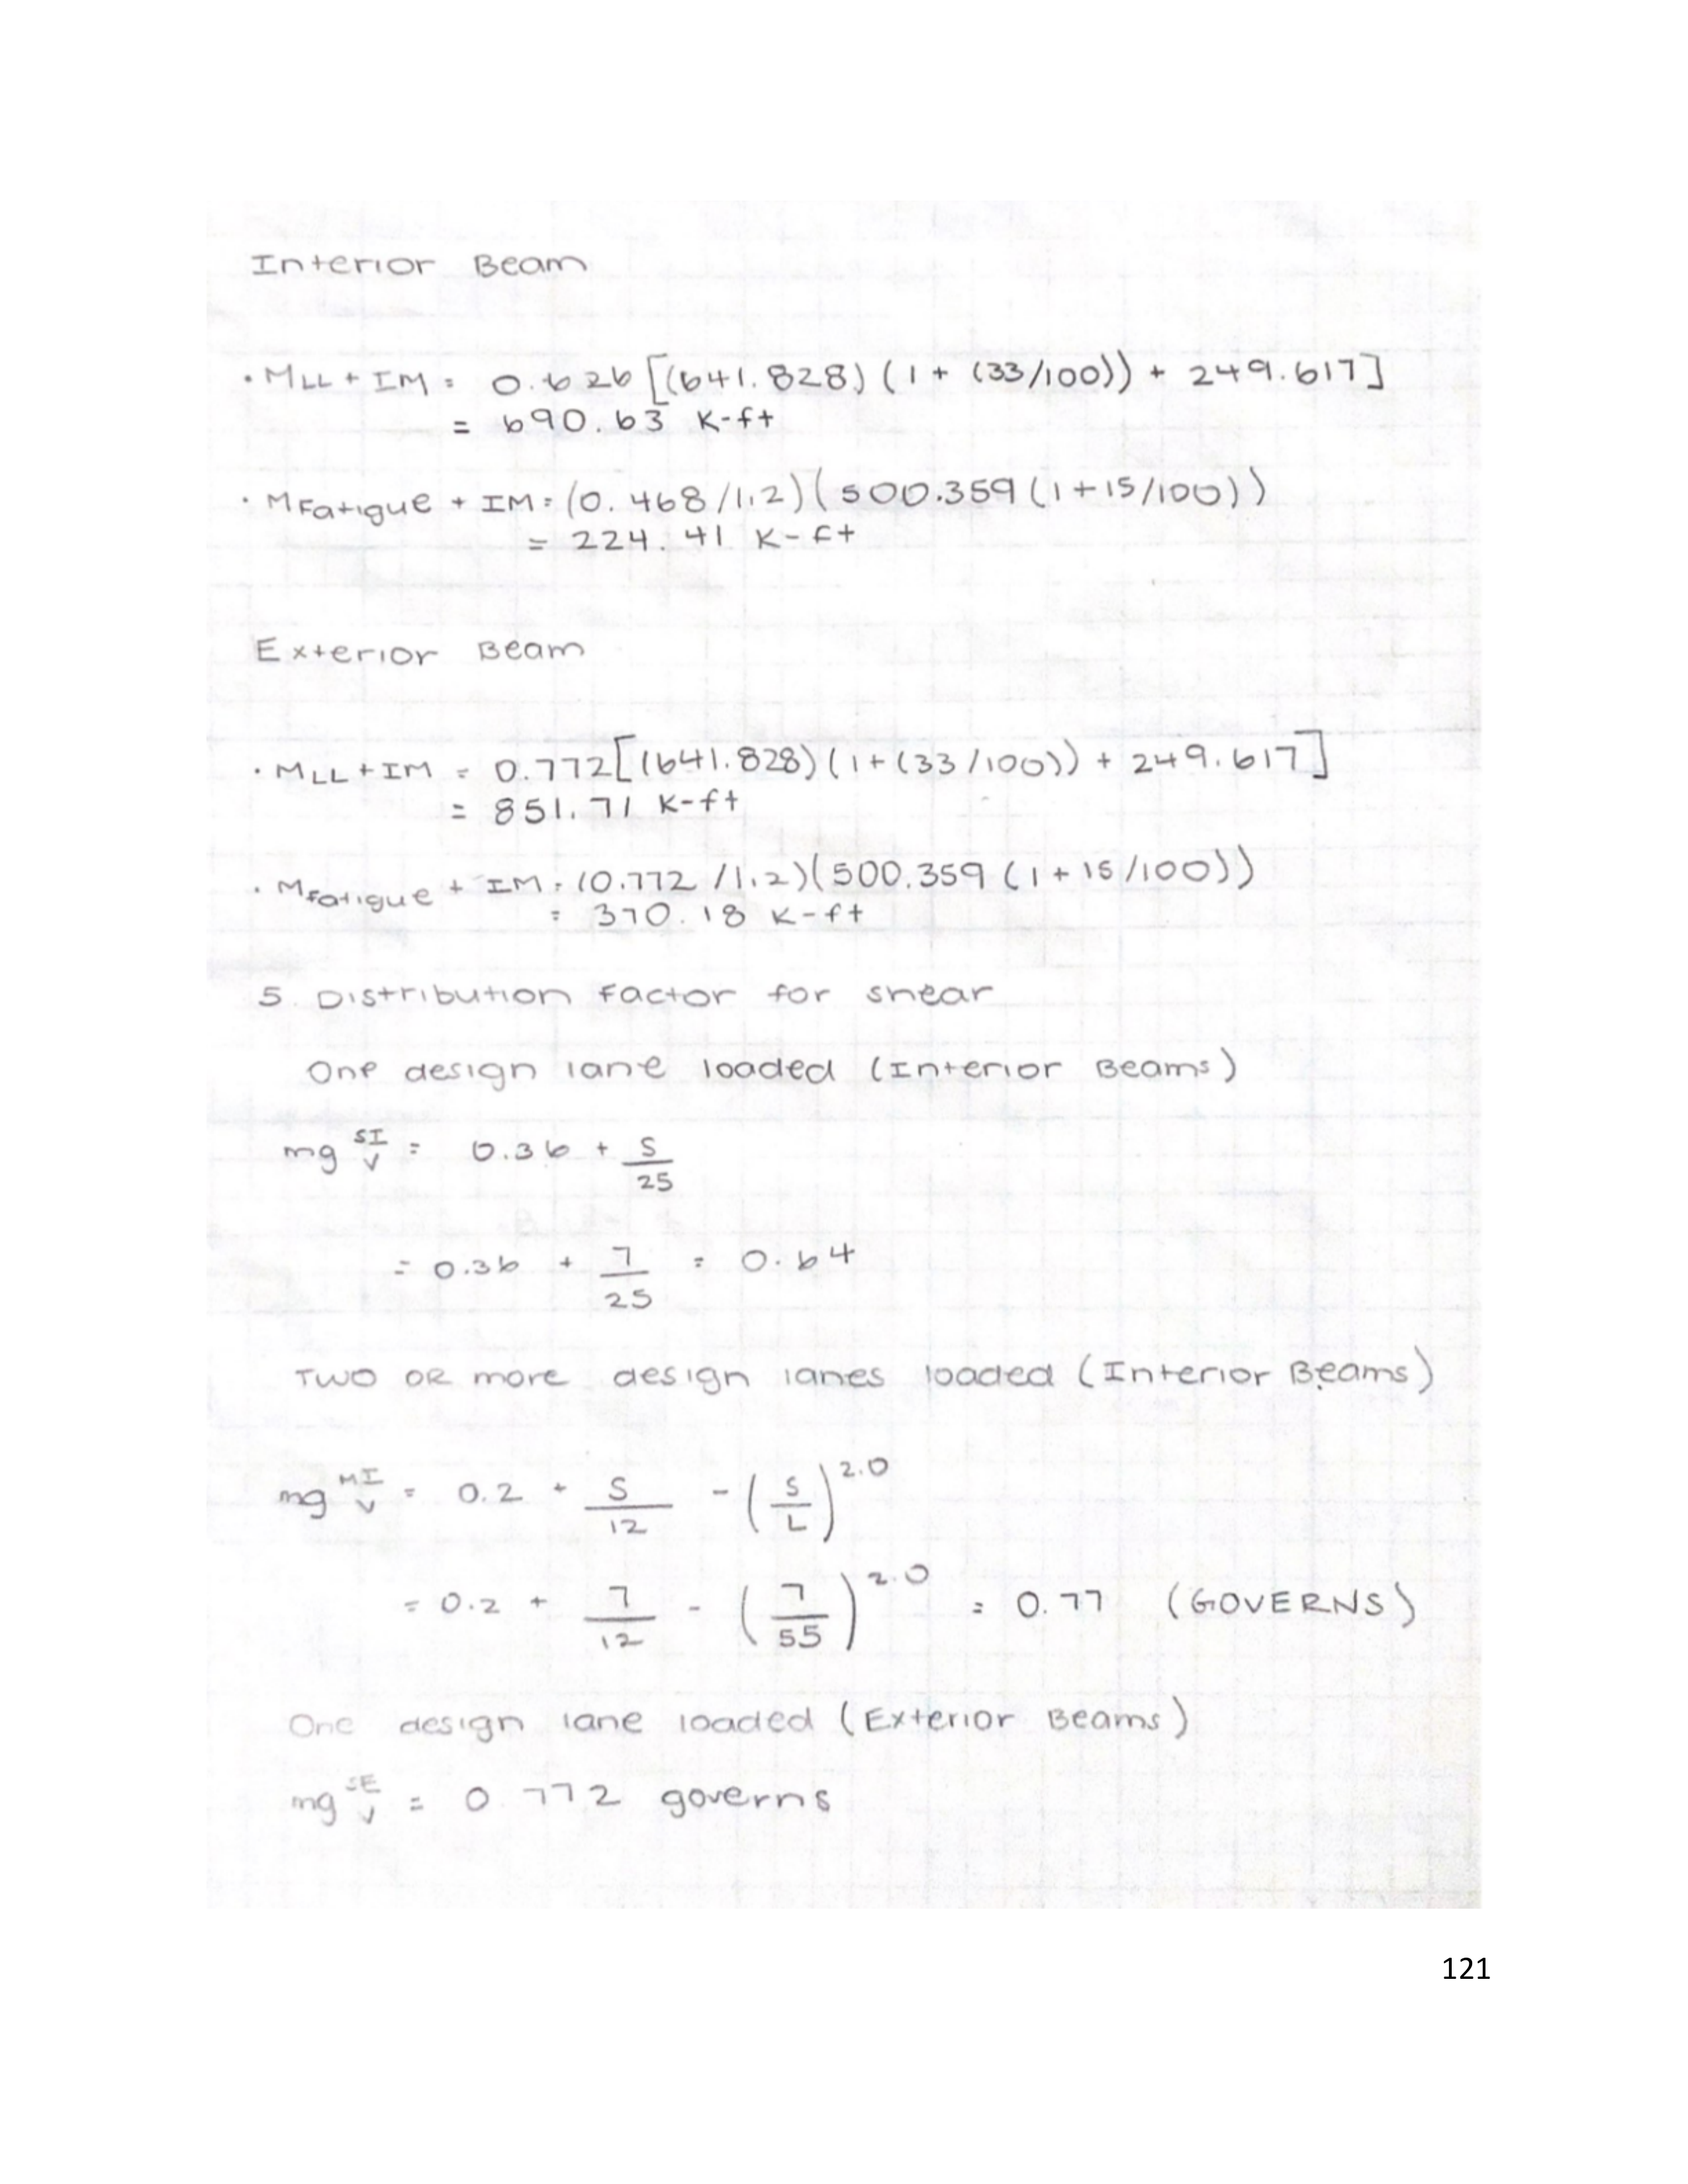 Interior Beam
· MLL + IM = 0.626 [(641.828) (1 + (33/100)) + 249.617]
= 690.63 K-ft
· MFatigue + IM = (0.468/1.2)(500.359(1+15/100))
= 224.41 K-ft
Exterior Beam
· MLL + IM = 0.772[(641.828)(1+(33/100)) + 249.617]
= 851.71 K-ft
· MFatigue + IM = (0.772/1.2)(500.359(1+15/100))
= 370.18 K-ft
5. Distribution Factor for shear
One design lane loaded (Interior Beams)
mg SI V = 0.36 + S/25
= 0.36 + 7/25 = 0.64
TWO OR more design lanes loaded (Interior Beams)
mg MI V = 0.2 + S/12 - (S/L)^2.0
= 0.2 + 7/12 - (7/55)^2.0 = 0.77 (GOVERNS)
One design lane loaded (Exterior Beams)
mg SE V = 0.772 governs
121